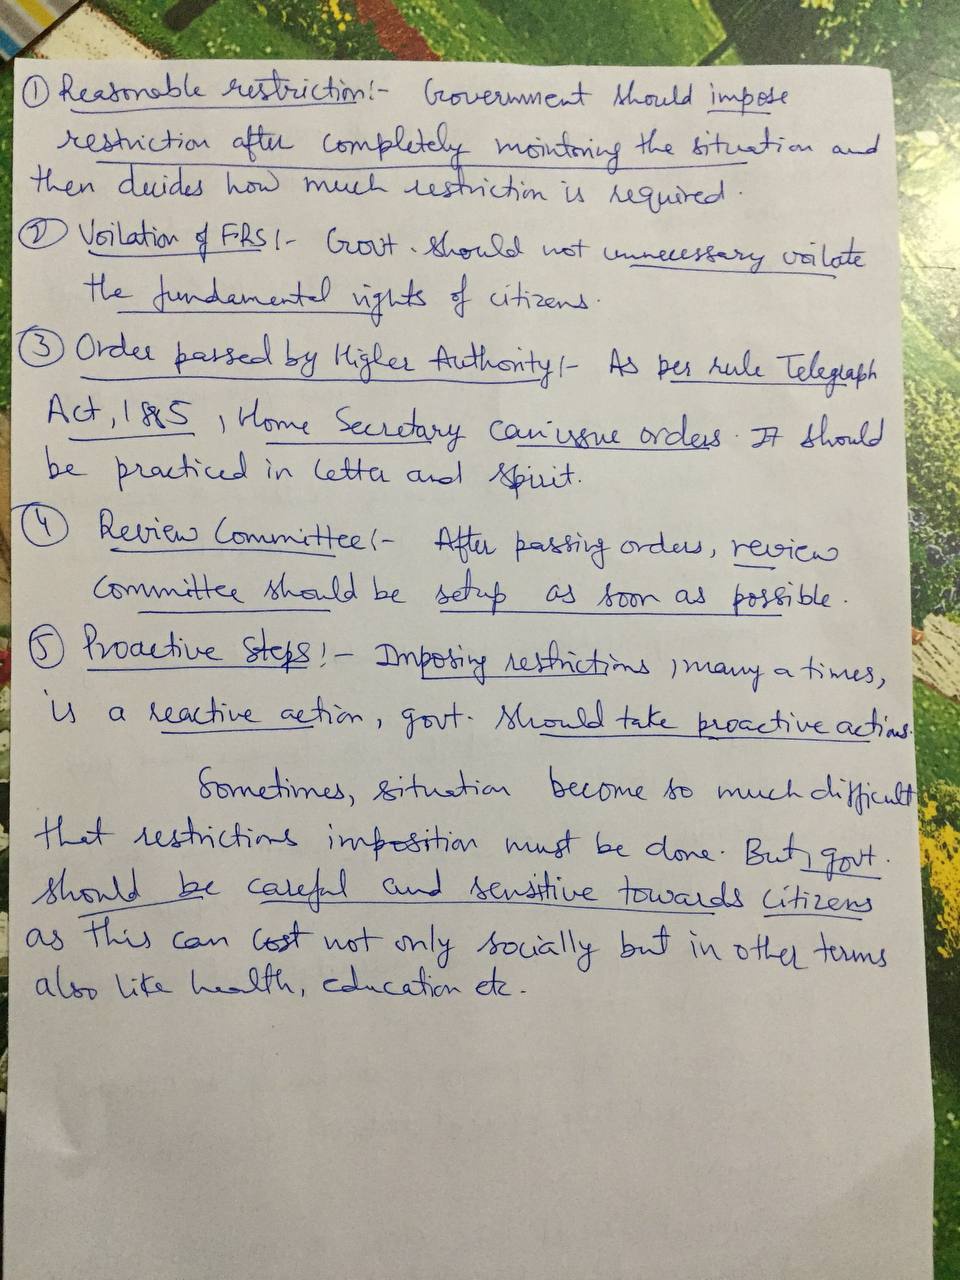 ① Reasonable restriction:- Government should impose
restriction after completely mointoring the situation and
then decides how much restriction is required.
② Voilation of FRS:- Govt. should not unnecessary voilate
the fundamental rights of citizens.
③ Order passed by Higher Authority:- As per rule Telegraph
Act, 1885, Home Secretary can issue orders. It should
be practiced in letter and spirit.
④ Review Committee:- After passing orders, review
committee should be setup as soon as possible.
⑤ Proactive Steps:- Imposing restrictions, many a times,
is a reactive action, govt. should take proactive actions.
Sometimes, situation become so much difficult
that restrictions imposition must be done. But, govt.
should be careful and sensitive towards citizens
as this can cost not only socially but in other terms
also like health, education etc.